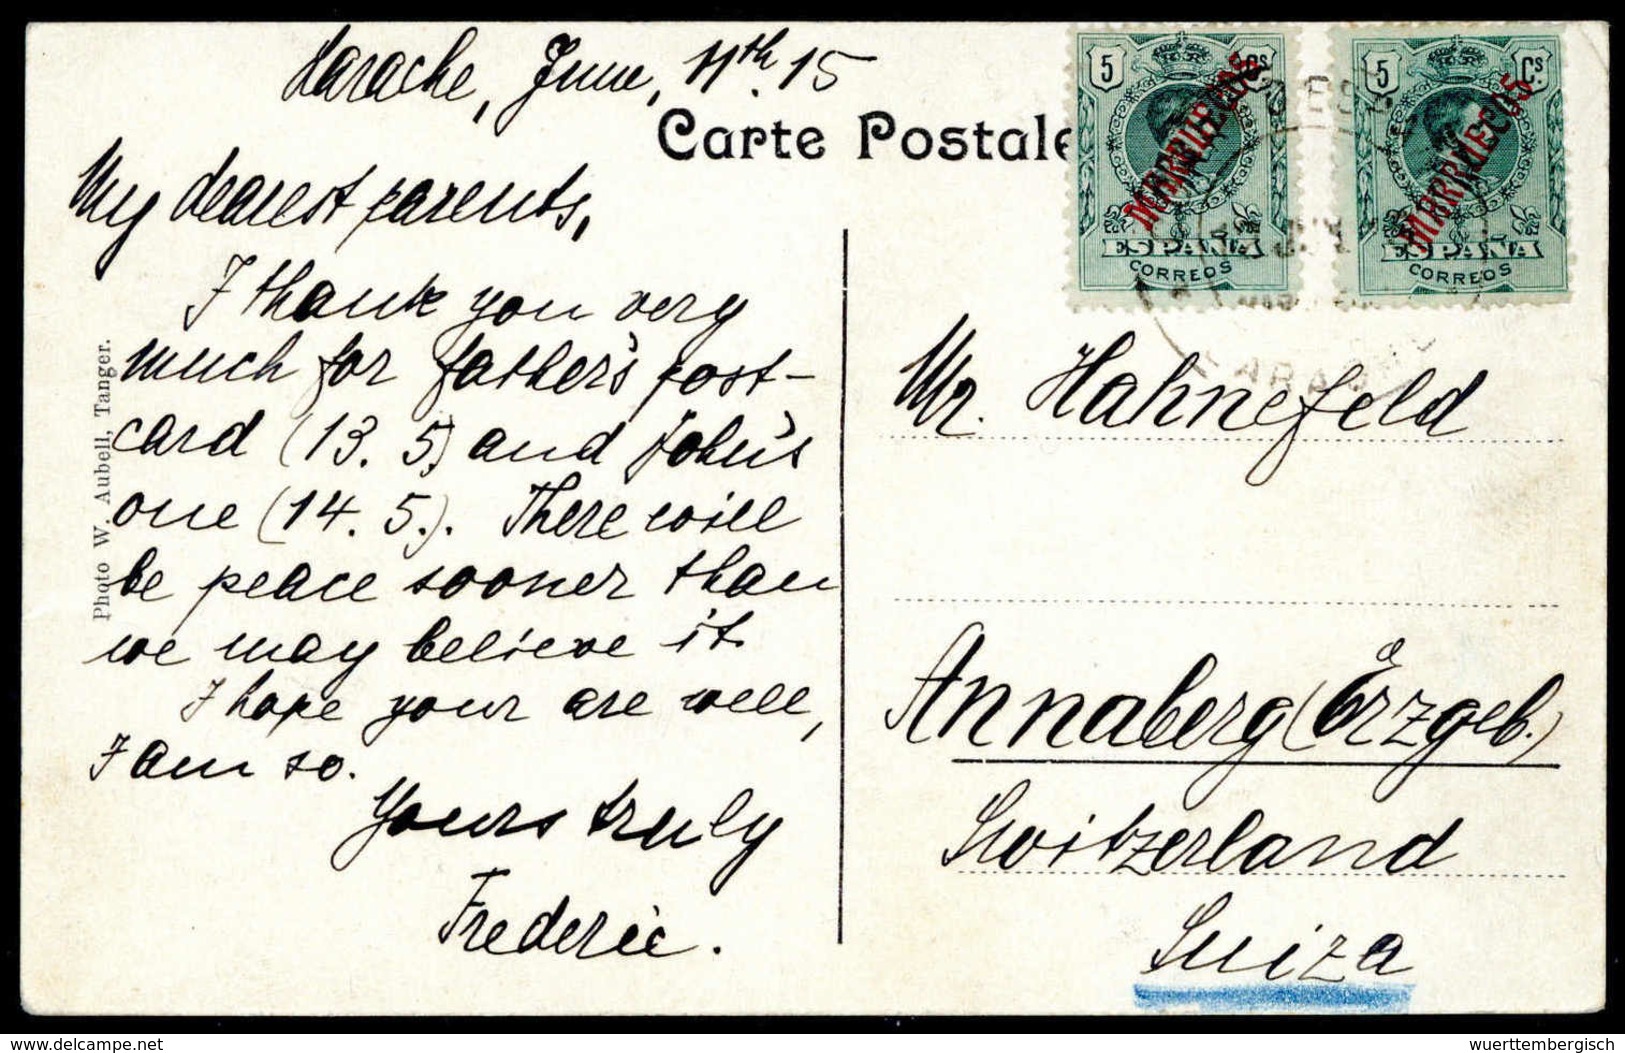 Larache, June, 11th. 15
Carte Postale
My dearest parents,
I thank you very
much for father's post-
card (13. 5.) and John's
one (14. 5.). There will
be peace sooner than
we may believe it.
I hope your are well,
I am so.
Yours truly
Frederic.
Photo W. Aubell, Tanger.
5 Cs
MARRUECOS
ESPAÑA
CORREOS
5 Cs.
MARRUECOS
ESPAÑA
CORREOS
Mr. Hahnefeld
Annaberg (Erzgeb.)
Switzerland
Suiza
delcampe.net
wuerttembergisch